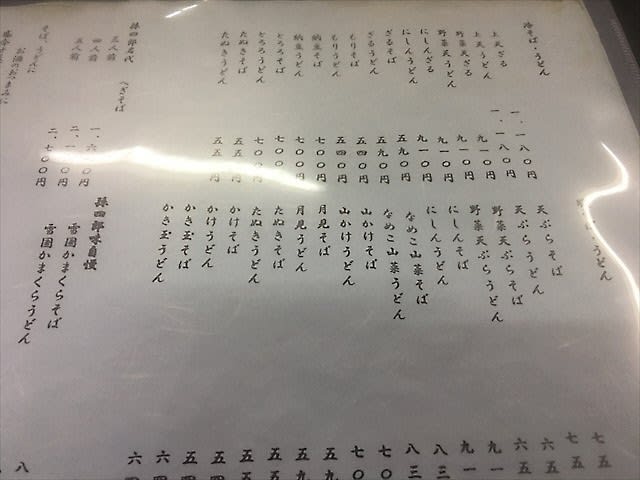 冷そば・うどん
上天ざる 一、一八〇円
上天うどん 一、一八〇円
野菜天ざる 九一〇円
野菜天うどん 九一〇円
にしんざる 九一〇円
にしんうどん 九一〇円
ざるそば 五九〇円
ざるうどん 五九〇円
もりそば 五四〇円
もりうどん 五四〇円
納豆そば 七〇〇円
納豆うどん 七〇〇円
とろろそば 七〇〇円
とろろうどん 七〇〇円
たぬきそば 五五〇円
たぬきうどん 五五〇円
孫四郎名代 へぎそば
三人前 一、六〇〇円
四人前 二、一〇〇円
五人前 二、七〇〇円
そば、うどんに
お酒のおつまみに
うどん
天ぷらそば
天ぷらうどん
野菜天ぷらそば
野菜天ぷらうどん
にしんそば
にしんうどん
なめこ山菜そば
なめこ山菜うどん
山かけそば
山かけうどん
月見そば
月見うどん
たぬきそば
たぬきうどん
かけそば
かけうどん
かき玉そば
かき玉うどん
孫四郎味自慢
雪国かまくらそば
雪国かまくらうどん